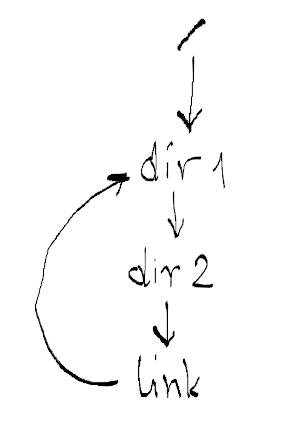 /
dir 1
dir 2
link